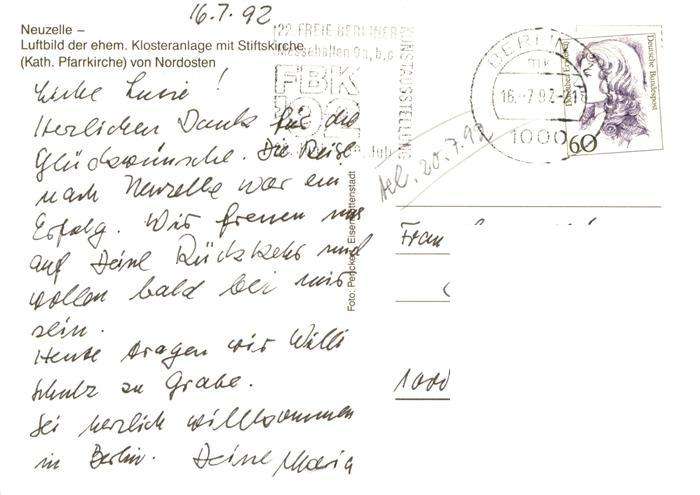 16.7.92
Neuzelle –
Luftbild der ehem. Klosteranlage mit Stiftskirche
(Kath. Pfarrkirche) von Nordosten
Liebe Luzie!
Herzlichen Dank für die
Glückwünsche. Die Reise
nach Neuzelle war ein
Erfolg. Wir freuen uns
auf Deine Rückkehr und
wollen bald bei mir
sein.
Heute tragen wir Willi
Schulz zu Grabe.
Sei herzlich willkommen
in Berlin. Deine Maria
22 FREIE BERLINER
KUNSTAUSSTELLUNG
Messehallen 9a,b,c
FBK
'92
BERLIN
16.-7.92-
1000
Deutsche Bundespost
60
20.7.92
Foto: Eisenhüttenstadt
Frau
1000